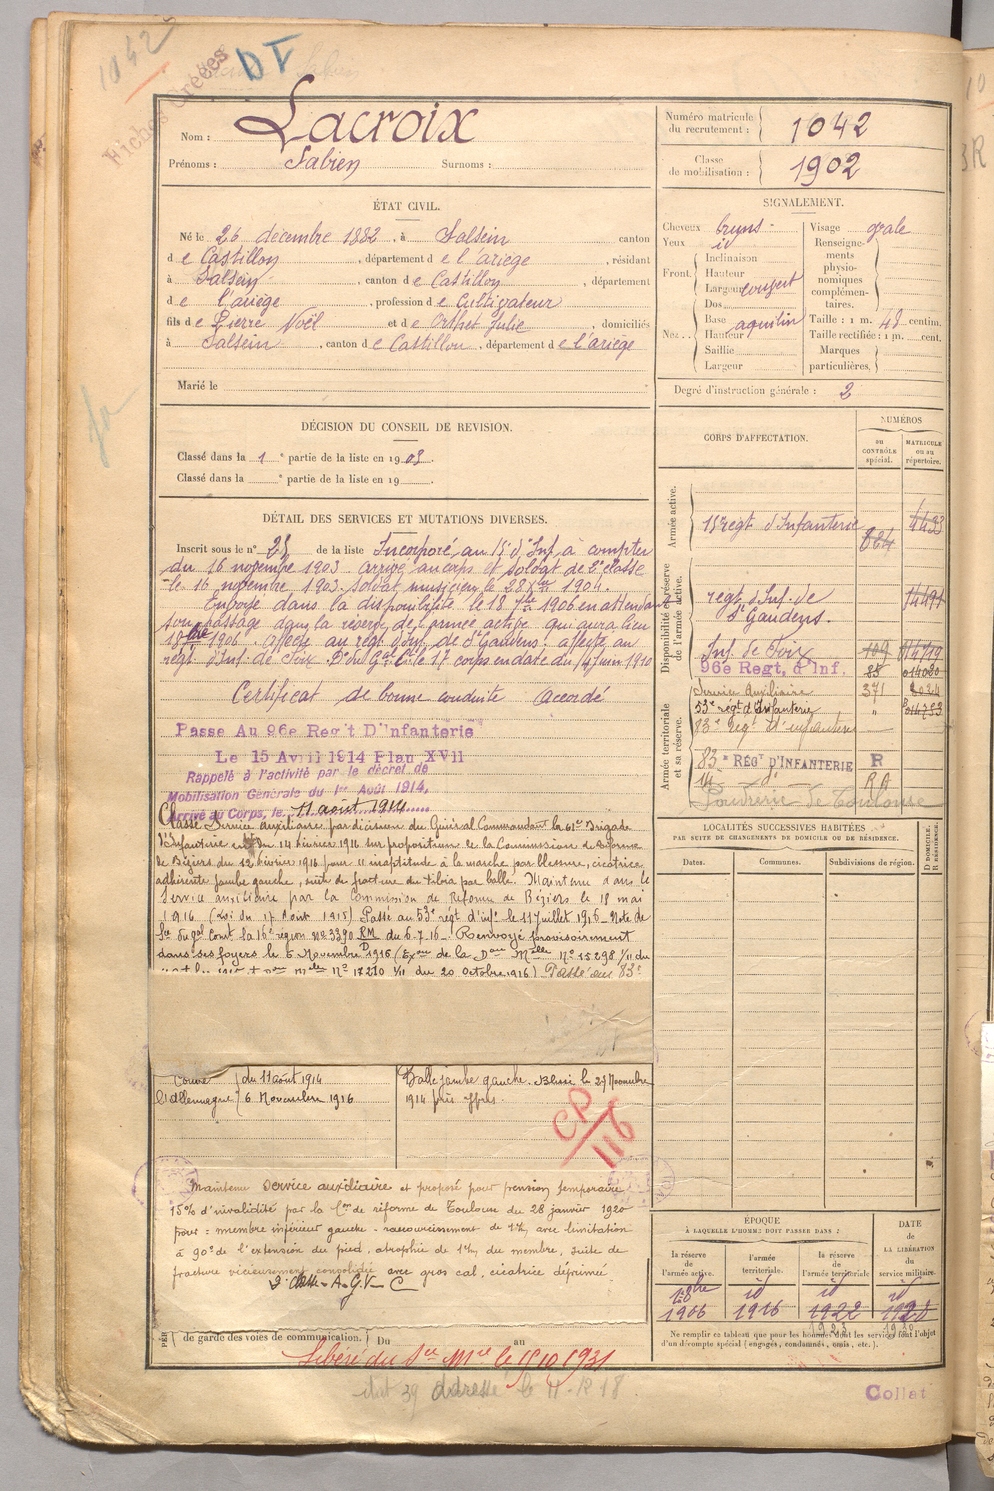 1042
Fiches Créées
DV
Nom : Lacroix
Prénoms : Fabien Surnoms :
Numéro matricule du recrutement : 1042
Classe de mobilisation : 1902
ÉTAT CIVIL.
Né le 26 décembre 1882, à Salsein canton
de Castillon, département de l'ariège, résidant
à Salsein, canton de Castillon, département
de l'ariège, profession de Cultivateur
fils de Pierre Noël et de Orthet Julie, domiciliés
à Salsein, canton de Castillon, département de l'ariège
Marié le
SIGNALEMENT.
Cheveux bruns
Yeux id
Front. Inclinaison
Hauteur
Largeur
Nez. Dos
Base aquilin
Hauteur
Saillie
Largeur
Visage ovale
Renseignements physionomiques complémentaires.
Taille : 1 m. 48 centim.
Taille rectifiée : 1 m. cent.
Marques particulières.
Degré d'instruction générale : 2
DÉCISION DU CONSEIL DE REVISION.
Classé dans la 1e partie de la liste en 1903.
Classé dans la e partie de la liste en 19 .
DÉTAIL DES SERVICES ET MUTATIONS DIVERSES.
Inscrit sous le n° 25 de la liste Incorporé au 15e d'Inf. à compter
du 16 novembre 1903. arrivé au corps et soldat de 2e classe
le 16 novembre 1903. Soldat musicien le 28 1904.
Envoyé dans la disponibilité le 18 7bre 1906 en attendant
son passage dans la réserve de l'armée active qui aura lieu
1906. affecté au régt d'Inf. de St Gaudens. affecté au
régt d'Inf. de Foix. Don Gal Ct le 17 corps en date du 14 juin 1910
Certificat de bonne conduite accordé
Passe Au 96e Reg't D'Infanterie
Le 15 Avril 1914 Plan XVII
Rappelé à l'activité par le décret de
Mobilisation Générale du 1er Août 1914.
Arrivé au Corps, le 11 août 1914
Classé Service auxiliaire par décision du Général Commandant la 61e Brigade
d'Infanterie du 14 février 1916 sur proposition de la Commission de Réforme
de Béziers du 12 février 1916 pour "inaptitude à la marche, par blessure, cicatrice
adhérente jambe gauche, suite de fracture du tibia par balle. Maintenu dans le
Service auxiliaire par la Commission de Réforme de Béziers le 18 mai
1916 (Loi du 17 Août 1915) Passé au 53e régt d'inf. le 11 juillet 1916 - Note de
Sce du Gal Comt la 16e région no 3390 RM du 6.7.16 - Renvoyé provisoirement
dans ses foyers le 6 Novembre 1916 (Exon de la Don Mlle No 15298 1/11 du
No 17210 1/11 du 20 Octobre 1916) Passé au 83e
Contre l'Allemagne du 11 août 1914
6 Novembre 1916
Balle jambe gauche. Blessé le 27 Novembre
1914 près Ypres.
CP/116
Maintenu service auxiliaire et proposé pour pension temporaire
15% d'invalidité par la Con de réforme de Toulouse du 28 janvier 1920
pour : membre inférieur gauche - raccourcissement de 1 %, avec limitation
à 90° de l'extension du pied, atrophie de 1 % du membre, suite de
fracture vicieusement consolidée avec gros cal, cicatrice déprimée.
A-G.V-C
de garde des voies de communication. Du au
Libéré du Sce Mre le 15.10.1931
CORPS D'AFFECTATION.
NUMÉROS
au CONTRÔLE spécial.
MATRICULE ou au répertoire.
Armée active.
15 régt d'Infanterie 4433
Disponibilité et réserve de l'armée active.
régt d'Inf. de St Gaudens.
Inf. de Foix 109
96e Regt, d'Inf. 85
Armée territoriale et sa réserve.
Service Auxiliaire 371
53e régt d'Infanterie "
83e régt d'infanterie
83e RÉGT D'INFANTERIE R
14e do RA
Poudrerie de Toulouse
LOCALITÉS SUCCESSIVES HABITÉES
PAR SUITE DE CHANGEMENTS DE DOMICILE OU DE RÉSIDENCE.
Dates. Communes. Subdivisions de région.
D DOMICILE. R RÉSIDENCE.
ÉPOQUE
À LAQUELLE L'HOMME DOIT PASSER DANS :
la réserve de l'armée active.
l'armée territoriale.
la réserve de l'armée territoriale
DATE DE LA LIBÉRATION du service militaire.
id id id
1906 1916 1922 1928
Ne remplir ce tableau que pour les hommes dont les services font l'objet
d'un décompte spécial (engagés, condamnés, omis, etc.).
Collat